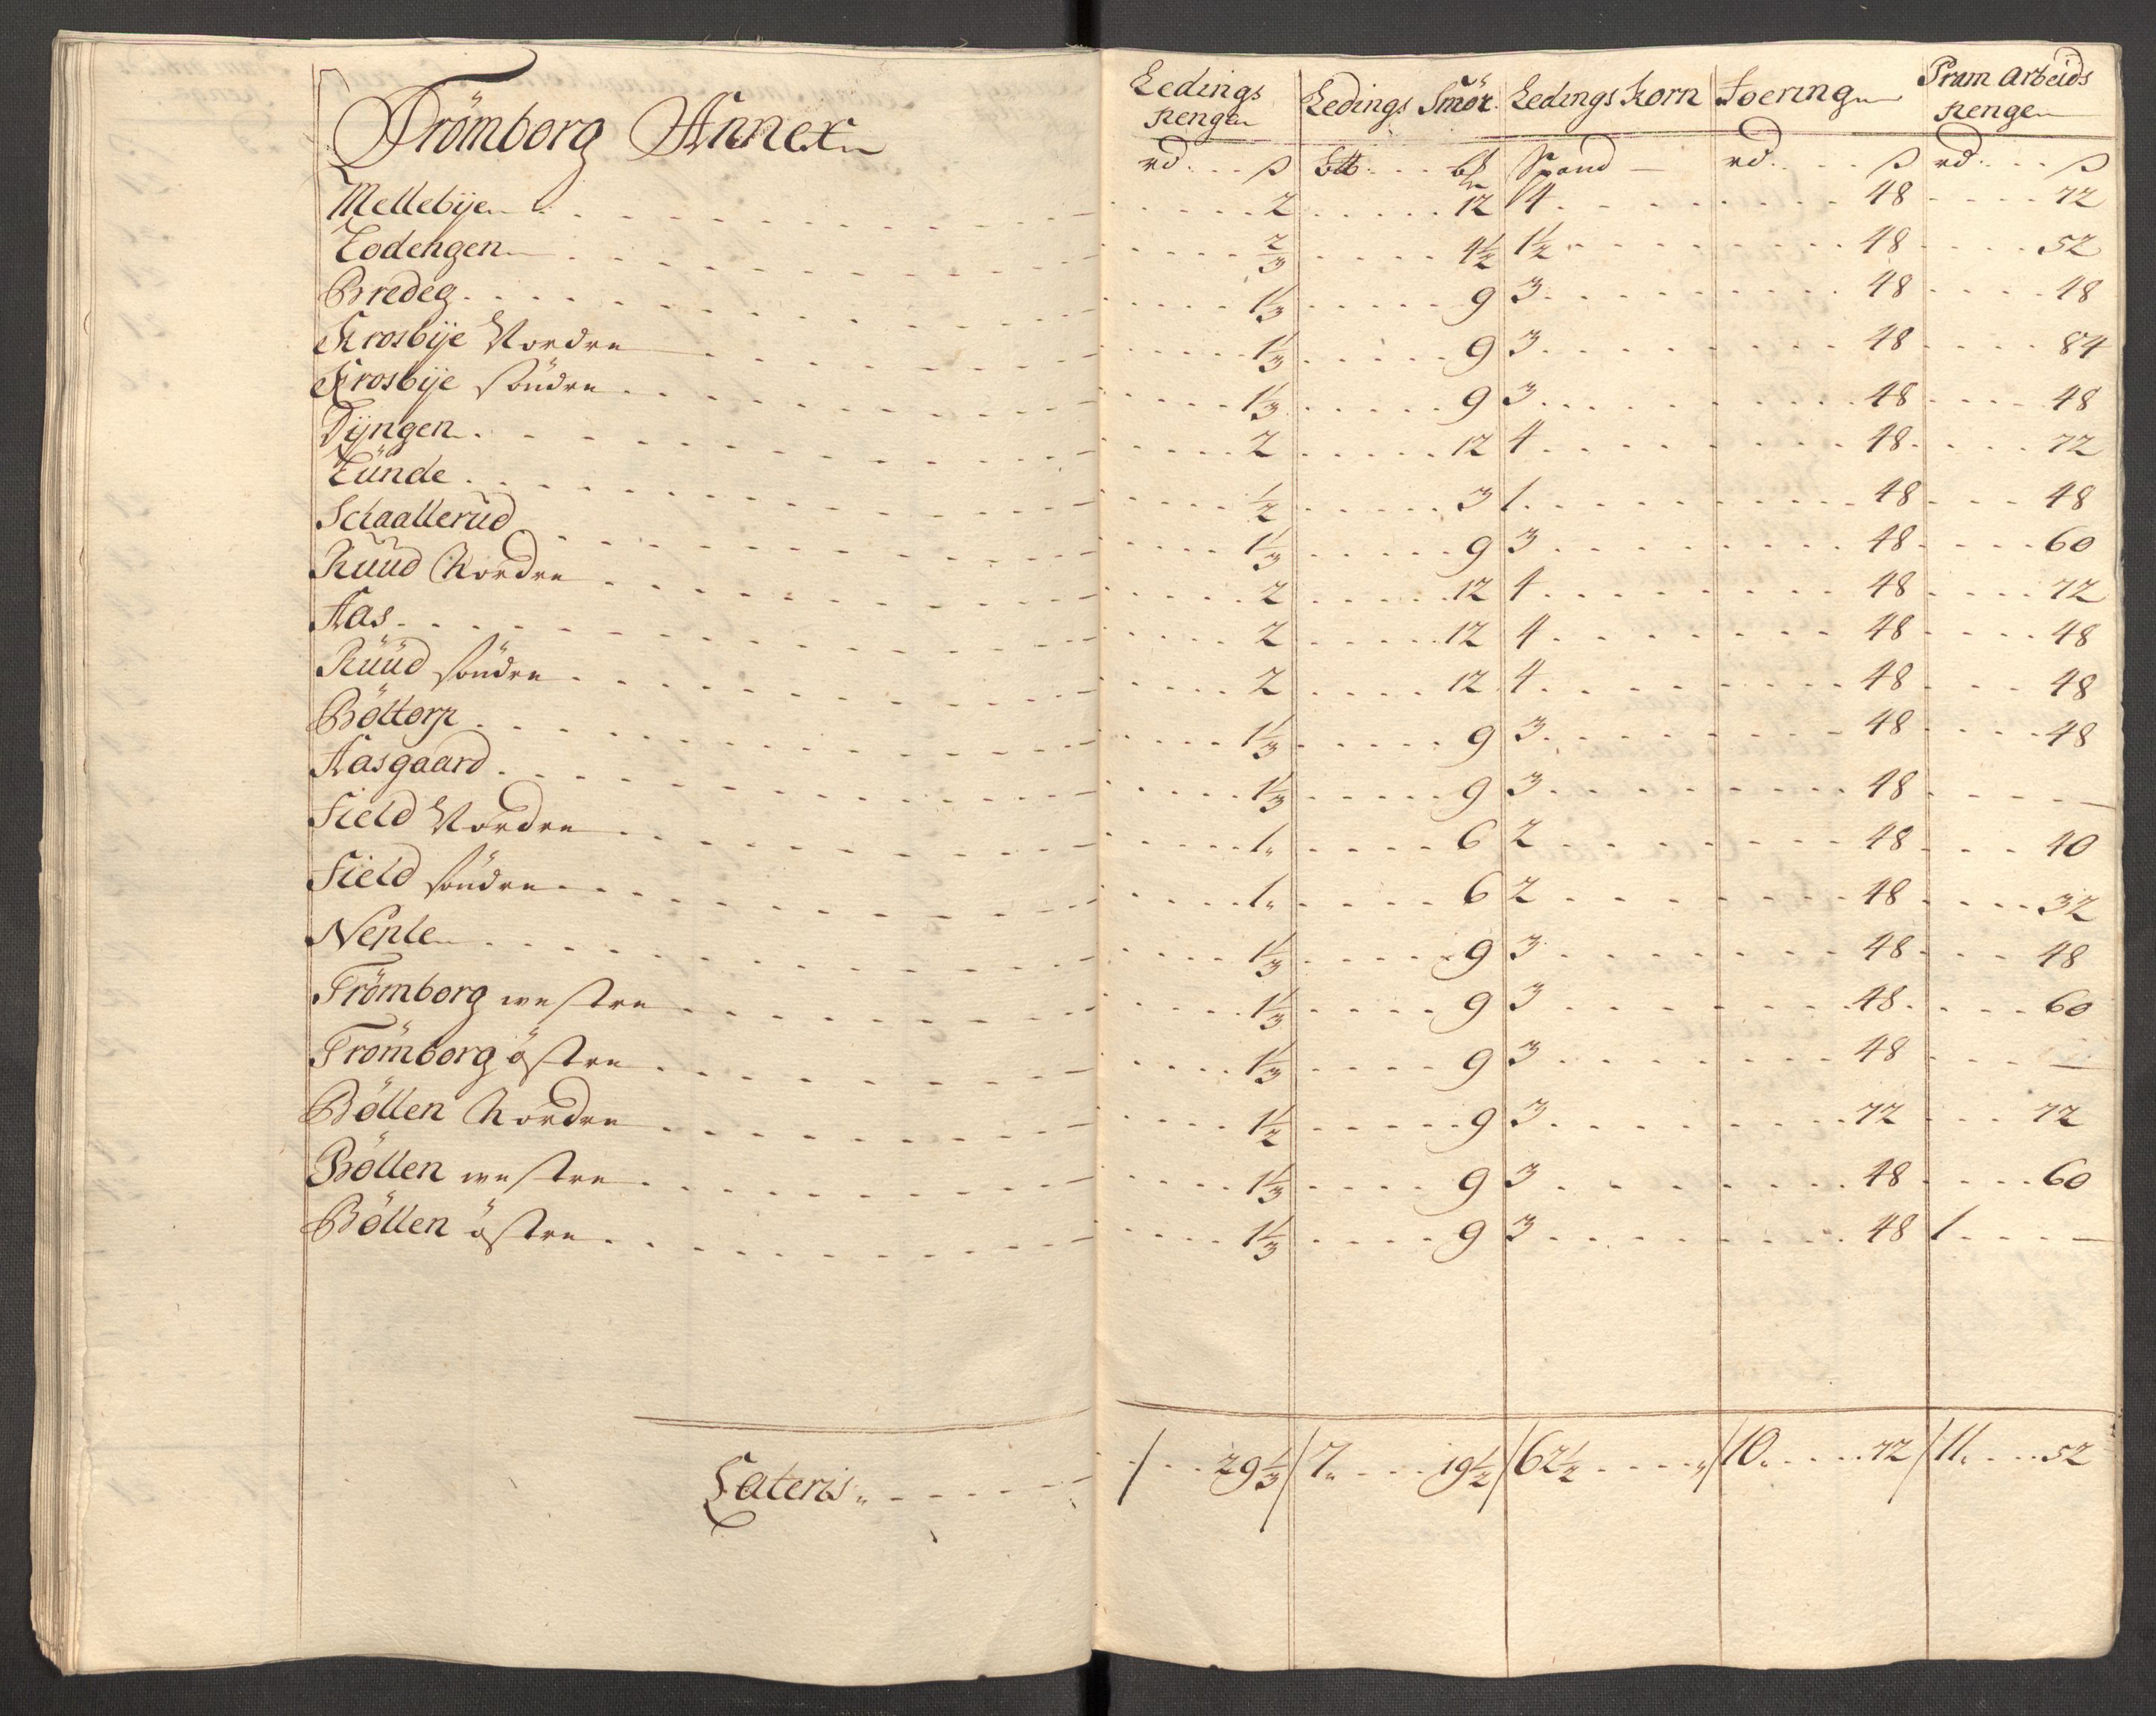 Trömborg Annex
Ledings Penge | Ledings Smör | Ledings Korn | Foering | Pram Arbeids Penge
rd ß | b℔ | Spand | rd ß | rd ß
Mellebÿe 2 12 4 48 72
Todengen 2/3 4½ 1½ 48 52
Bredeg 1⅓ 9 3 48 48
Krosbÿe Nordre 1⅓ 9 3 48 84
Krosbÿe söndre 1⅓ 9 3 48 48
Dÿngen 2 12 4 48 72
Lünde ½ 3 1 48 48
Schaallerud 1⅓ 9 3 48 60
Rüüd Nordre 2 12 4 48 72
Aas 2 12 4 48 48
Rüüd söndre 2 12 4 48 48
Böltorp 1⅓ 9 3 48 48
Aasgaard 1⅓ 9 3 48 —
Field Nordre 1 6 2 48 40
Field söndre 1 6 2 48 32
Neple 1⅓ 9 3 48 48
Trömborg westre 1⅓ 9 3 48 60
Trömborg östre 1⅓ 9 3 48 —
Böllen Nordre 1½ 9 3 72 72
Böllen westre 1⅓ 9 3 48 60
Böllen östre 1⅓ 9 3 48 1 —
Lateris 29⅓ 7 19½ 62½ 10 72 11 52